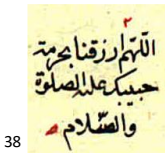 ٢
اللهم ارزقنا بحرمة
حبيبك عليه الصلوة
والسلام
38